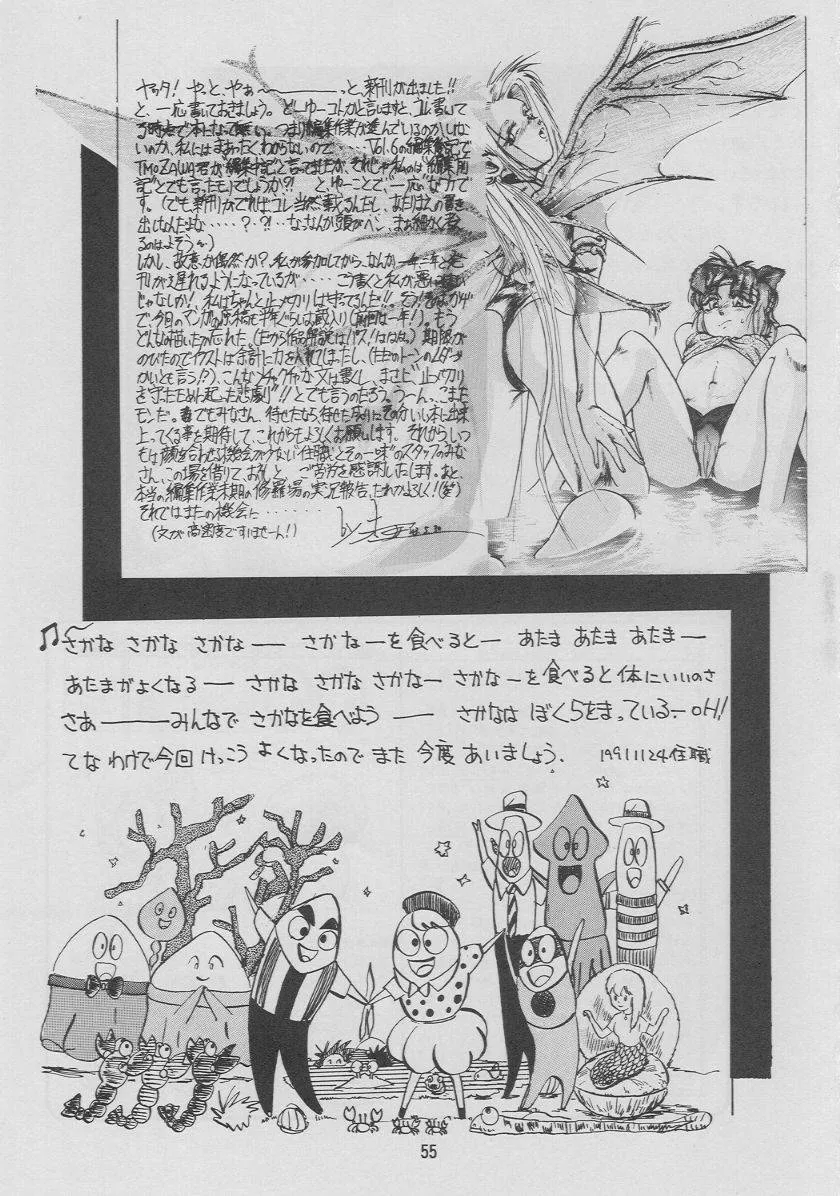 ヤッタ! やっと、やぁ〜――――っと、新刊が出ました!!
と、一応書いておきましょう。どーゆーコトかと言いますと、コレ書いて
る時点で本になって無い。つまり編集作業が進んでいるのかいない
のか、私にはまぁったくわからないので‥‥‥Vol.6の編集後記で
TMOZAWA君が"編集中記"と言ってましたが、それじゃ私のは"編集前
記"とでも言ったモノでしょうか?! とゆーことで、一応なワケで
す。(でも新刊がでれば、コレ当然載るんだし、あたりまえの書き
出しなんだよな‥‥‥?‥?!‥なっなんか頭がヘン、まぁ細かく考え
るのはよそう)
しかし、故意か偶然か?、私が参加してから、なんか一年に一年と発
刊が遅れるようになっているが‥‥‥こう書くと私が悪い
じゃなしか!、私はちゃんと〆メ切りは守ってるんだ!!
で、今回のマンガの原稿も半年ぐらいは蔵入り(前回は一年!)。もう
どんなの描いたか忘れた、(だから作品解説はパス!ははは)期限が
のびたのでイラストは余計に力を入れてしまったし、(ただのトーンのムダづ
かいとも言う!?)、こんなメチャクチャな文は書くし、まさに"〆メ切り
を守ったために起った悲劇"!!とでも言うのだろう。うーん、こまった
モンだ。でもみなさん、待たせたなら、待たせたなりにそのかいい本に出来
上ってくる事を期待して、これからもよろしくお願いします。それから、いつ
もは顔を合わせる機会が少ない"住職"とその一味のスタッフのみな
さん、この場を借りて、お礼と、ご苦労を感謝いたします。あと、
本当の編集作業末期の修羅場の実況報告、だれかよろしく!(笑)
それではまたの機会に‥‥‥‥‥‥
(文が高密度ですいませーん!)
♫〜さかな さかな さかな―― さかなーを食べるとー あたま あたま あたまー
あたまがよくなる―― さかな さかな さかなー さかなーを食べると 体にいいのさ
さあ――――みんなで さかなを食べよう ―― さかなは ぼくらをまっているーoH!
てな わけで今回 けっこう よくなったので また 今度 あいましょう. 19911124住職
55